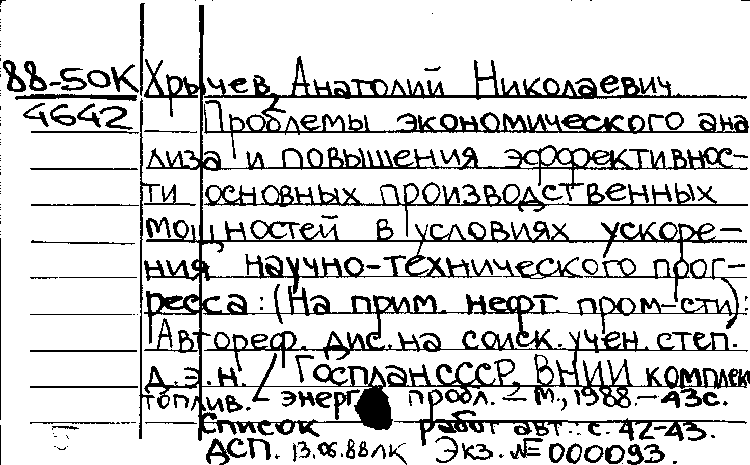 88-50К Хрычев, Анатолий Николаевич
4642 Проблемы экономического ана
лиза и повышения эффективнос-
ти основных производственных
мощностей в условиях ускоре-
ния научно-технического прог-
ресса: (На прим. нефт. пром-сти):
Автореф. дис. на соиск. учен. степ.
д.э.н. / Госплан СССР, ВНИИ комплек
топлив. - энерг пробл. - М., 1988. - 43с.
Список работ авт.: с. 42-43.
ДСП. 13.06.88 ЛК Экз. № 000093.